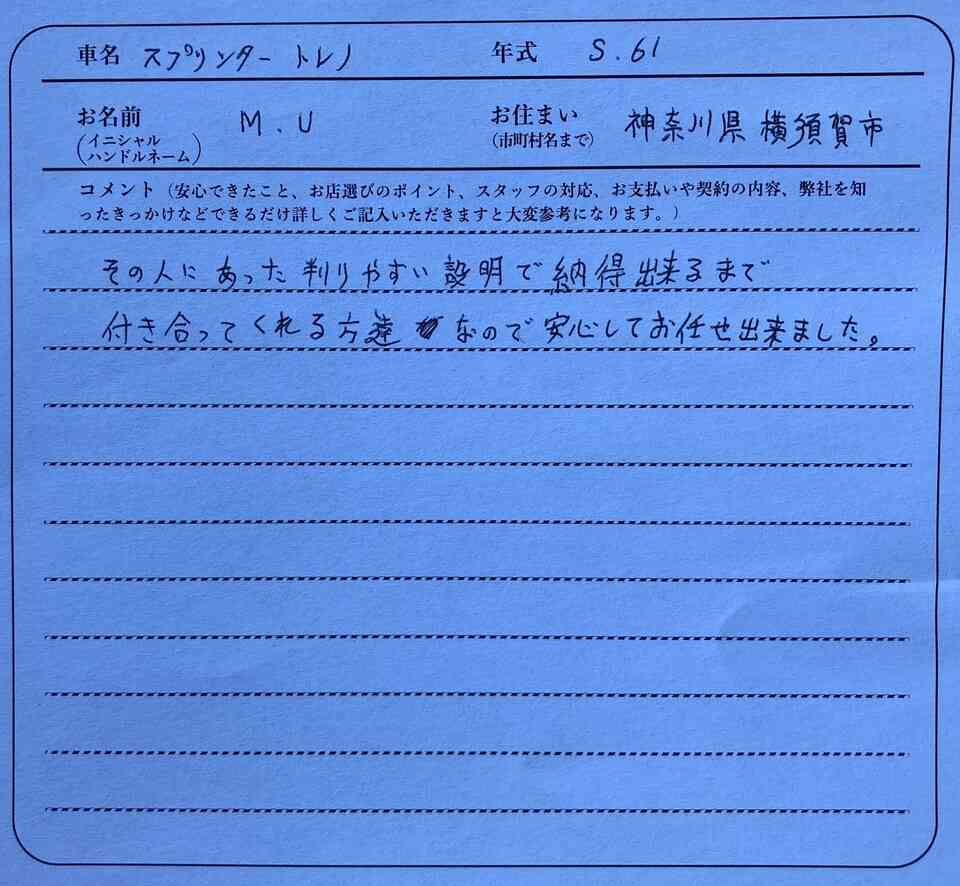 車名 スプリンター トレノ 年式 S.61
お名前 (イニシャル ハンドルネーム) M.U お住まい (市町村名まで) 神奈川県 横須賀市
コメント（安心できたこと、お店選びのポイント、スタッフの対応、お支払いや契約の内容、弊社を知
ったきっかけなどできるだけ詳しくご記入いただきますと大変参考になります。）
その人にあった判りやすい説明で納得出来るまで
付き合ってくれる方達なので安心してお任せ出来ました。